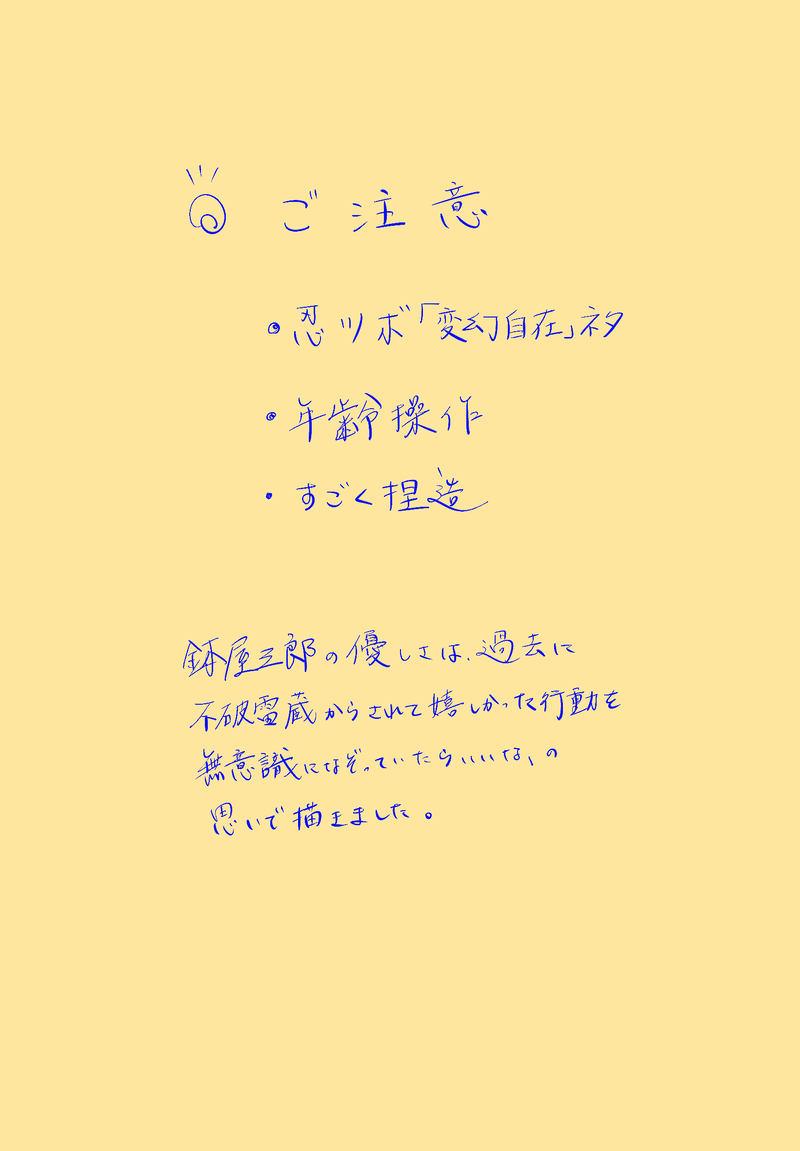 ご注意
・忍ツボ「変幻自在」ネタ
・年齢操作
・すごく捏造
鉢屋三郎の優しさは、過去に
不破雷蔵からされて嬉しかった行動を
無意識になぞっていたらいいな、の
思いで描きました。